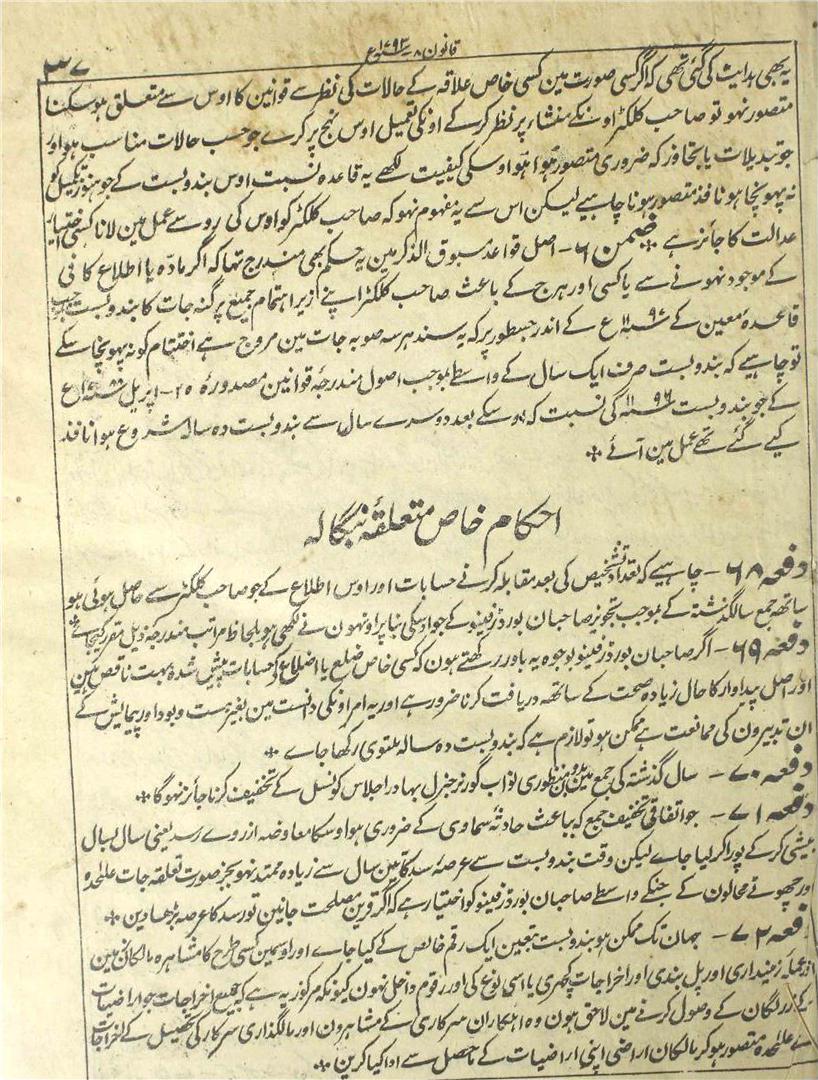 قانون ۸ ۱۷۹۳ع
۳۷
یہ بھی ہدایت کی گئی تھی کہ اگر کسی صورت مین کسی خاص علاقہ کے حالات کی نظر سے قوانین کا اوس سے متعلق ہو سکنا
متصور نہو تو صاحب کلکٹر اونکے منشار پر نظر کر کے اونکی تعمیل اوس نہج پر کرے جو حسب حالات مناسب ہو اور
جو تبدیلات یا تجاوز کہ ضروری متصور ہوا ہو اوسکی کیفیت لکھے یہ قاعدہ نسبت اوس بندوبست کے جو ہنوز تکمیل کو
نہ پہونچا ہو نافذ متصور ہونا چاہیے لیکن اس سے یہ مفہوم نہو کہ صاحب کلکٹر کو اوس کی رو سے عمل مین لانا کسی اختیار
عدالت کا جائز ہے ۞ ضمن ۶ - اصل قواعد مسبوق الذکر مین یہ حکم بھی مندرج تہا کہ اگر مادّہ یا اطلاع کافی
کے موجود نہونے سے یا کسی اور ہرج کے باعث صاحب کلکٹر اپنے زیر اہتمام جمیع پرگنہ جات کا بندوبست
قاعدۂ معین کے ۱۱۹۶ع کے اندر جسطور پر کہ یہ سنہ ہر سہ صوبہ جات مین مروج ہے اختتام کو نہ پہونچا سکے
تو چاہیے کہ بندوبست صرف ایک سال کے واسطے بموجب اصول مندرجۂ قوانین مصدورۂ ۲۵- اپریل ع
کے جو بندوبست ۱۱۹۶ کی نسبت کہ اوسکے بعد دوسرے سال سے بندوبست دہ سالہ شروع ہوا نافذ
کیے گئے تھے عمل مین آئے ۞
احکام خاص متعلقۂ بنگالہ
دفعہ ۶۸ - چاہیے کہ تعداد تشخیص کی بعد مقابلہ کرنے حسابات اور اوس اطلاع کے جو صاحب کلکٹر سے حاصل ہوئی ہو
ساتھ جمع سال گذشتہ کے بموجب تجویز صاحبان بورڈ رفینو کے جو اوسکی بنا پر اونہون نے لکھی ہو بلحاظ مراتب مندرجہ ذیل مقرر کیجائے ۞
دفعہ ۶۹ - اگر صاحبان بورڈ رفینو بوجوہ یہ باور رکھتے ہون کہ کسی خاص ضلع یا اضلاع کے حسابات پیش شدہ بہت ناقص ہین
اور اصل پیداوار کا حال زیادہ صحت کے ساتھہ دریافت کرنا ضرور ہے اور یہ امر اونکی دانست مین بغیر ہست و بود اور پیمایش کے
ان تدبیرون کی ممانعت ہے ممکن ہو تو لازم ہے کہ بندوبست دہ سالہ ملتوی رکھا جاے ۞
دفعہ ۷۰ - سال گذشتہ کی جمع مین بدون منظوری نواب گورنر جنرل بہادر اجلاس کونسل کے تخفیف کرنا جائز نہوگا ۞
دفعہ ۷۱ - جو اتفاقی تخفیف جمع کہ بباعث حادثۂ سماوی کے ضروری ہو اوسکا معاوضہ از روے رسد یعنی سال بسال
بیشی کر کے پورا کر لیا جاے لیکن وقت بندوبست سے عرصۂ رسد کا تین سال سے زیادہ ممتد نہو بجز صورت تعلقہ جات علٰحدہ
اور چھوٹے محالون کے جنکے واسطے صاحبان بورڈ رفینو کو اختیار ہے کہ اگر قرین مصلحت جانین تو رسد کا عرصہ بڑھا دین ۞
دفعہ ۷۲ - جہان تک ممکن ہو بندوبست بتعین ایک رقم خالص کے کیا جاے اور اوسمین کسی طرح کا مشاہرہ مالکان مین
از عملہ زمینداری اور پل بندی اور اخراجات کچہری یا اسی نوع کی اور رقوم داخل نہون کیونکہ مرکوز یہ ہے کہ جمیع اخراجات جو اراضیات
کے زر لگان کے وصول کرنے مین لاحق ہون وہ اہلکاران سرکاری کے مشاہرون اور مالگذاری سرکار کی تحصیل کے اخراجات
سے علٰحدہ متصور ہو کر مالکان اراضی اپنی اراضیات کے محاصل سے ادا کیا کرین ۞